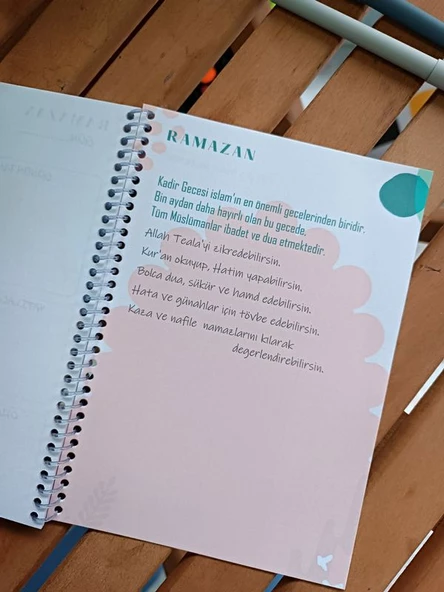 RAMAZAN
Kadir Gecesi islam'ın en önemli gecelerinden biridir.
Bin aydan daha hayırlı olan bu gecede,
Tüm Müslümanlar ibadet ve dua etmektedir.
Allah Teala'yi zikredebilirsin.
Kur'an okuyup, Hatim yapabilirsin.
Bolca dua, sükür ve hamd edebilirsin.
Hata ve günahlar için tövbe edebilirsin.
Kaza ve nafile namazlarını kılarak
degerlendirebilirsin.